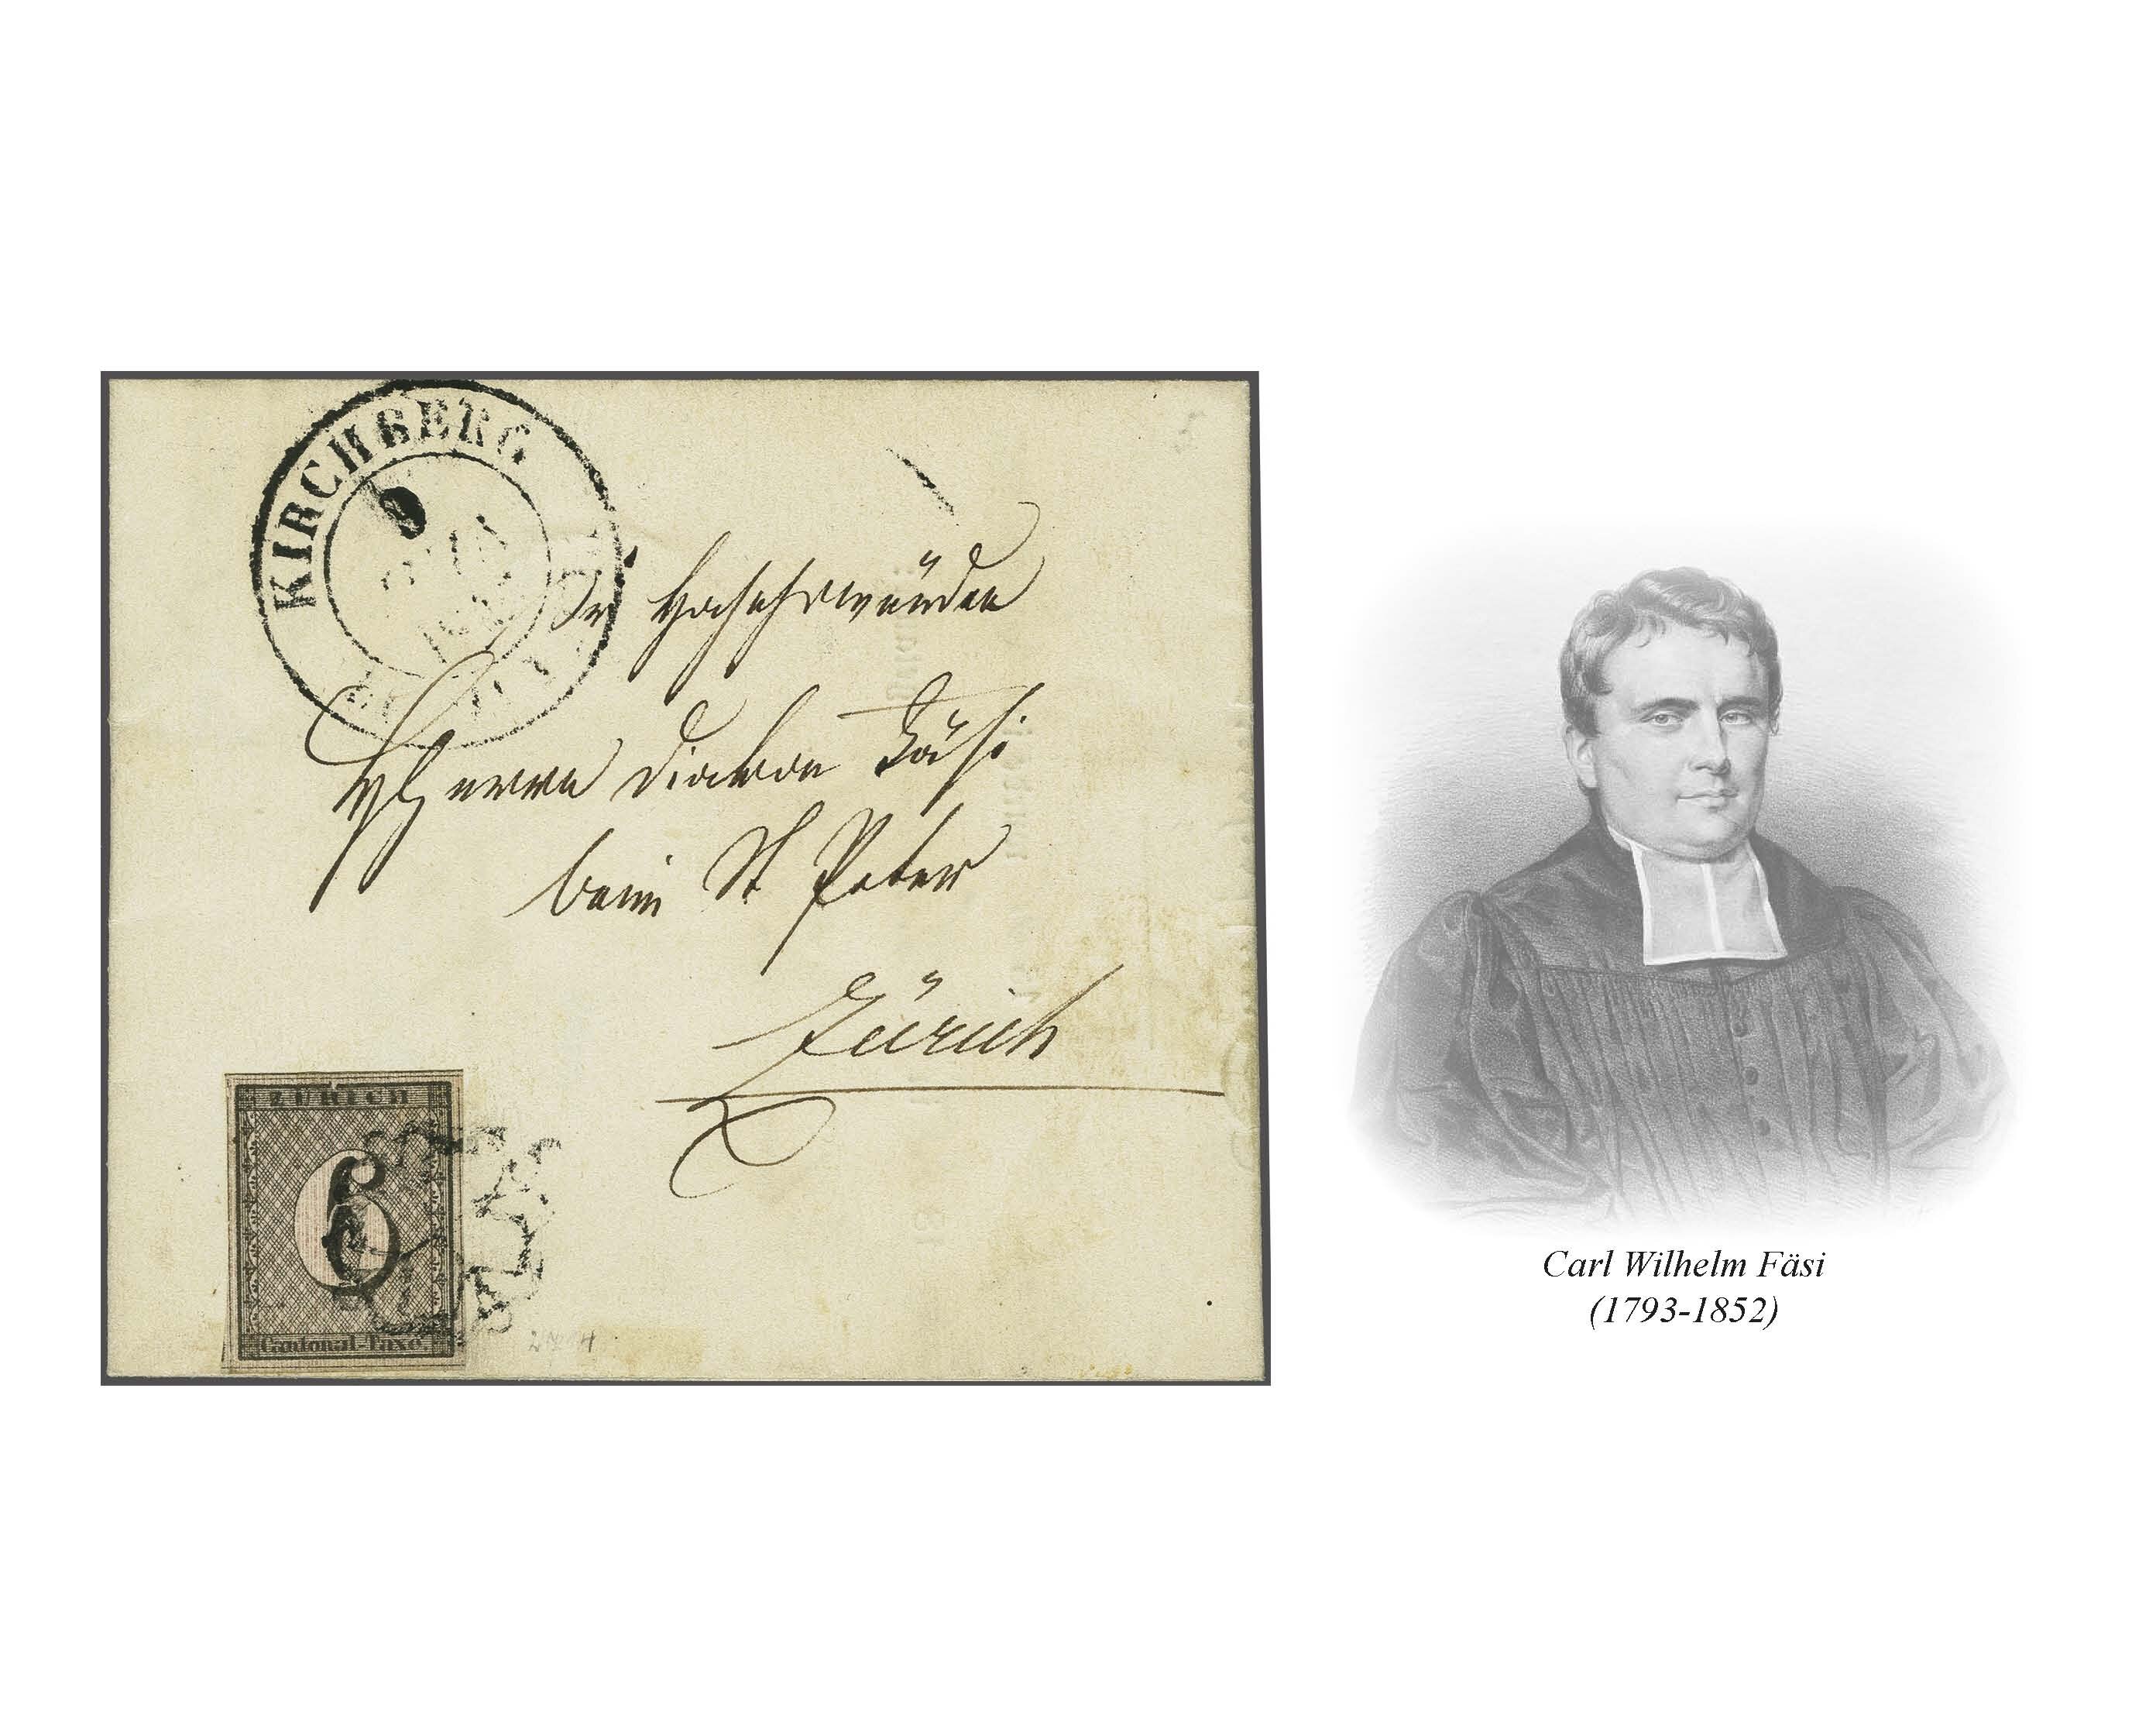 KIRCHBERG
9
Sr Hochehrwürden
HHerrn Diakon Fäsi
beim St Peter
Zürich
ZÜRICH
6
Cantonal-Taxe.
Carl Wilhelm Fäsi
(1793-1852)